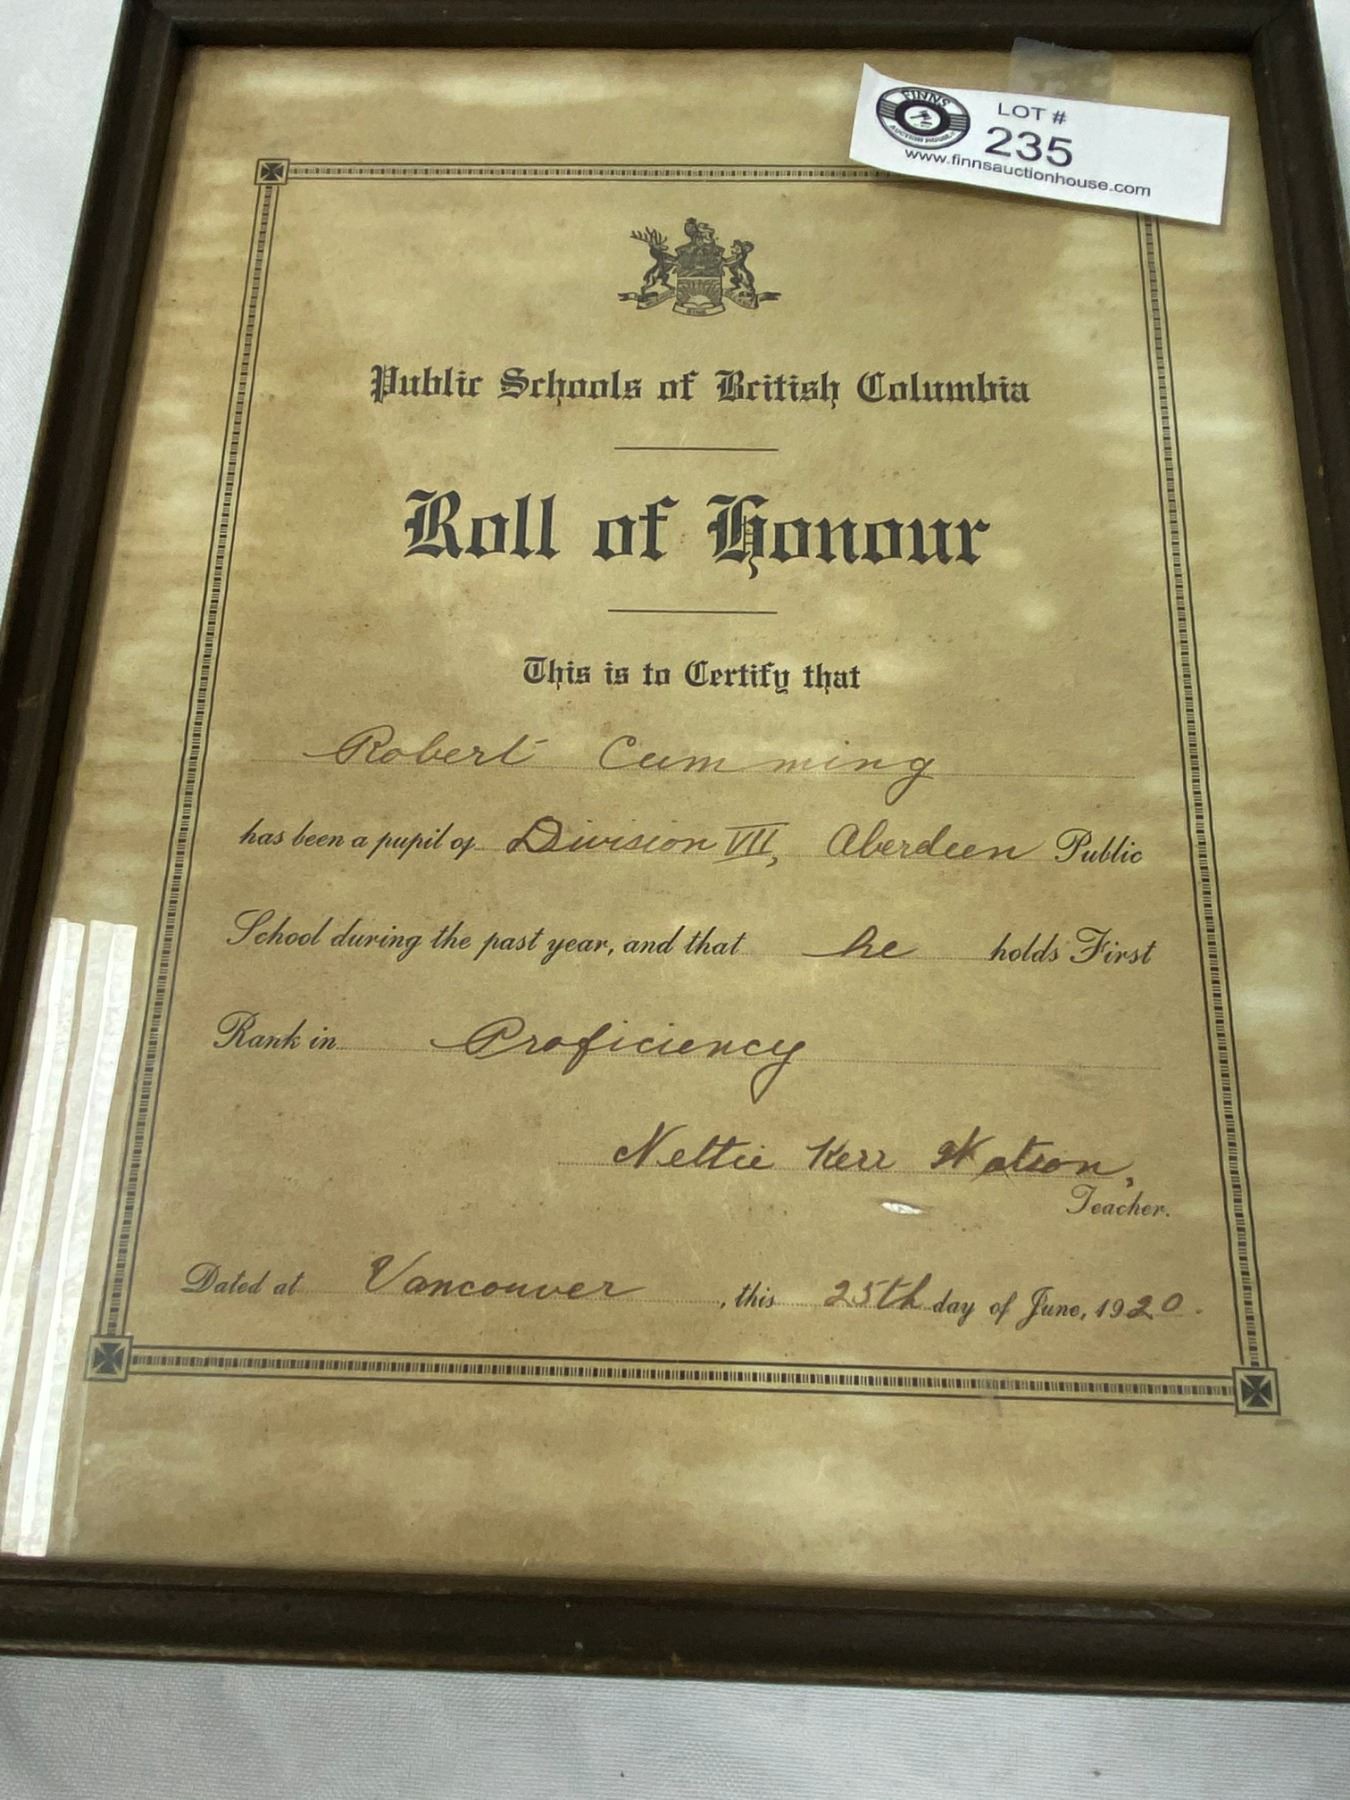 FINNS
AUCTION HOUSE
LOT #
235
www.finnsauctionhouse.com
Public Schools of British Columbia
Roll of Honour
This is to Certify that
Robert Cumming
has been a pupil of Division VII, Aberdeen Public
School during the past year, and that he holds First
Rank in Proficiency
Nettie Kerr Watson,
Teacher.
Dated at Vancouver, this 25th day of June, 1920.